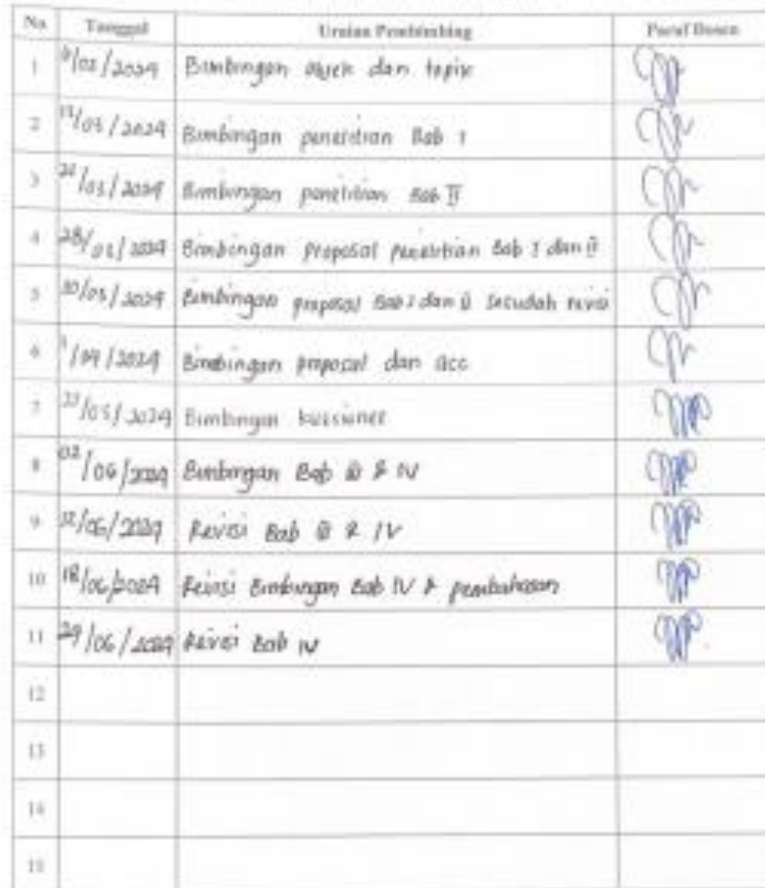 No. Tanggal Uraian Pembimbing Paraf Dosen
1 /2024 Bimbingan objek dan topik
2 /03/2024 Bimbingan penelitian Bab I
3 /03/2024 Bimbingan penelitian Bab II
4 28/03/2024 Bimbingan proposal penelitian Bab I dan II
5 30/03/2024 Bimbingan proposal Bab I dan II sesudah revisi
6 /04/2024 Bimbingan proposal dan acc
7 /05/2024 Bimbingan kuesioner
8 02/06/2024 Bimbingan Bab III & IV
9 12/06/2024 Revisi Bab III & IV
10 18/06/2024 Revisi Bimbingan Bab IV & pembahasan
11 29/06/2024 Revisi Bab IV
12
13
14
15